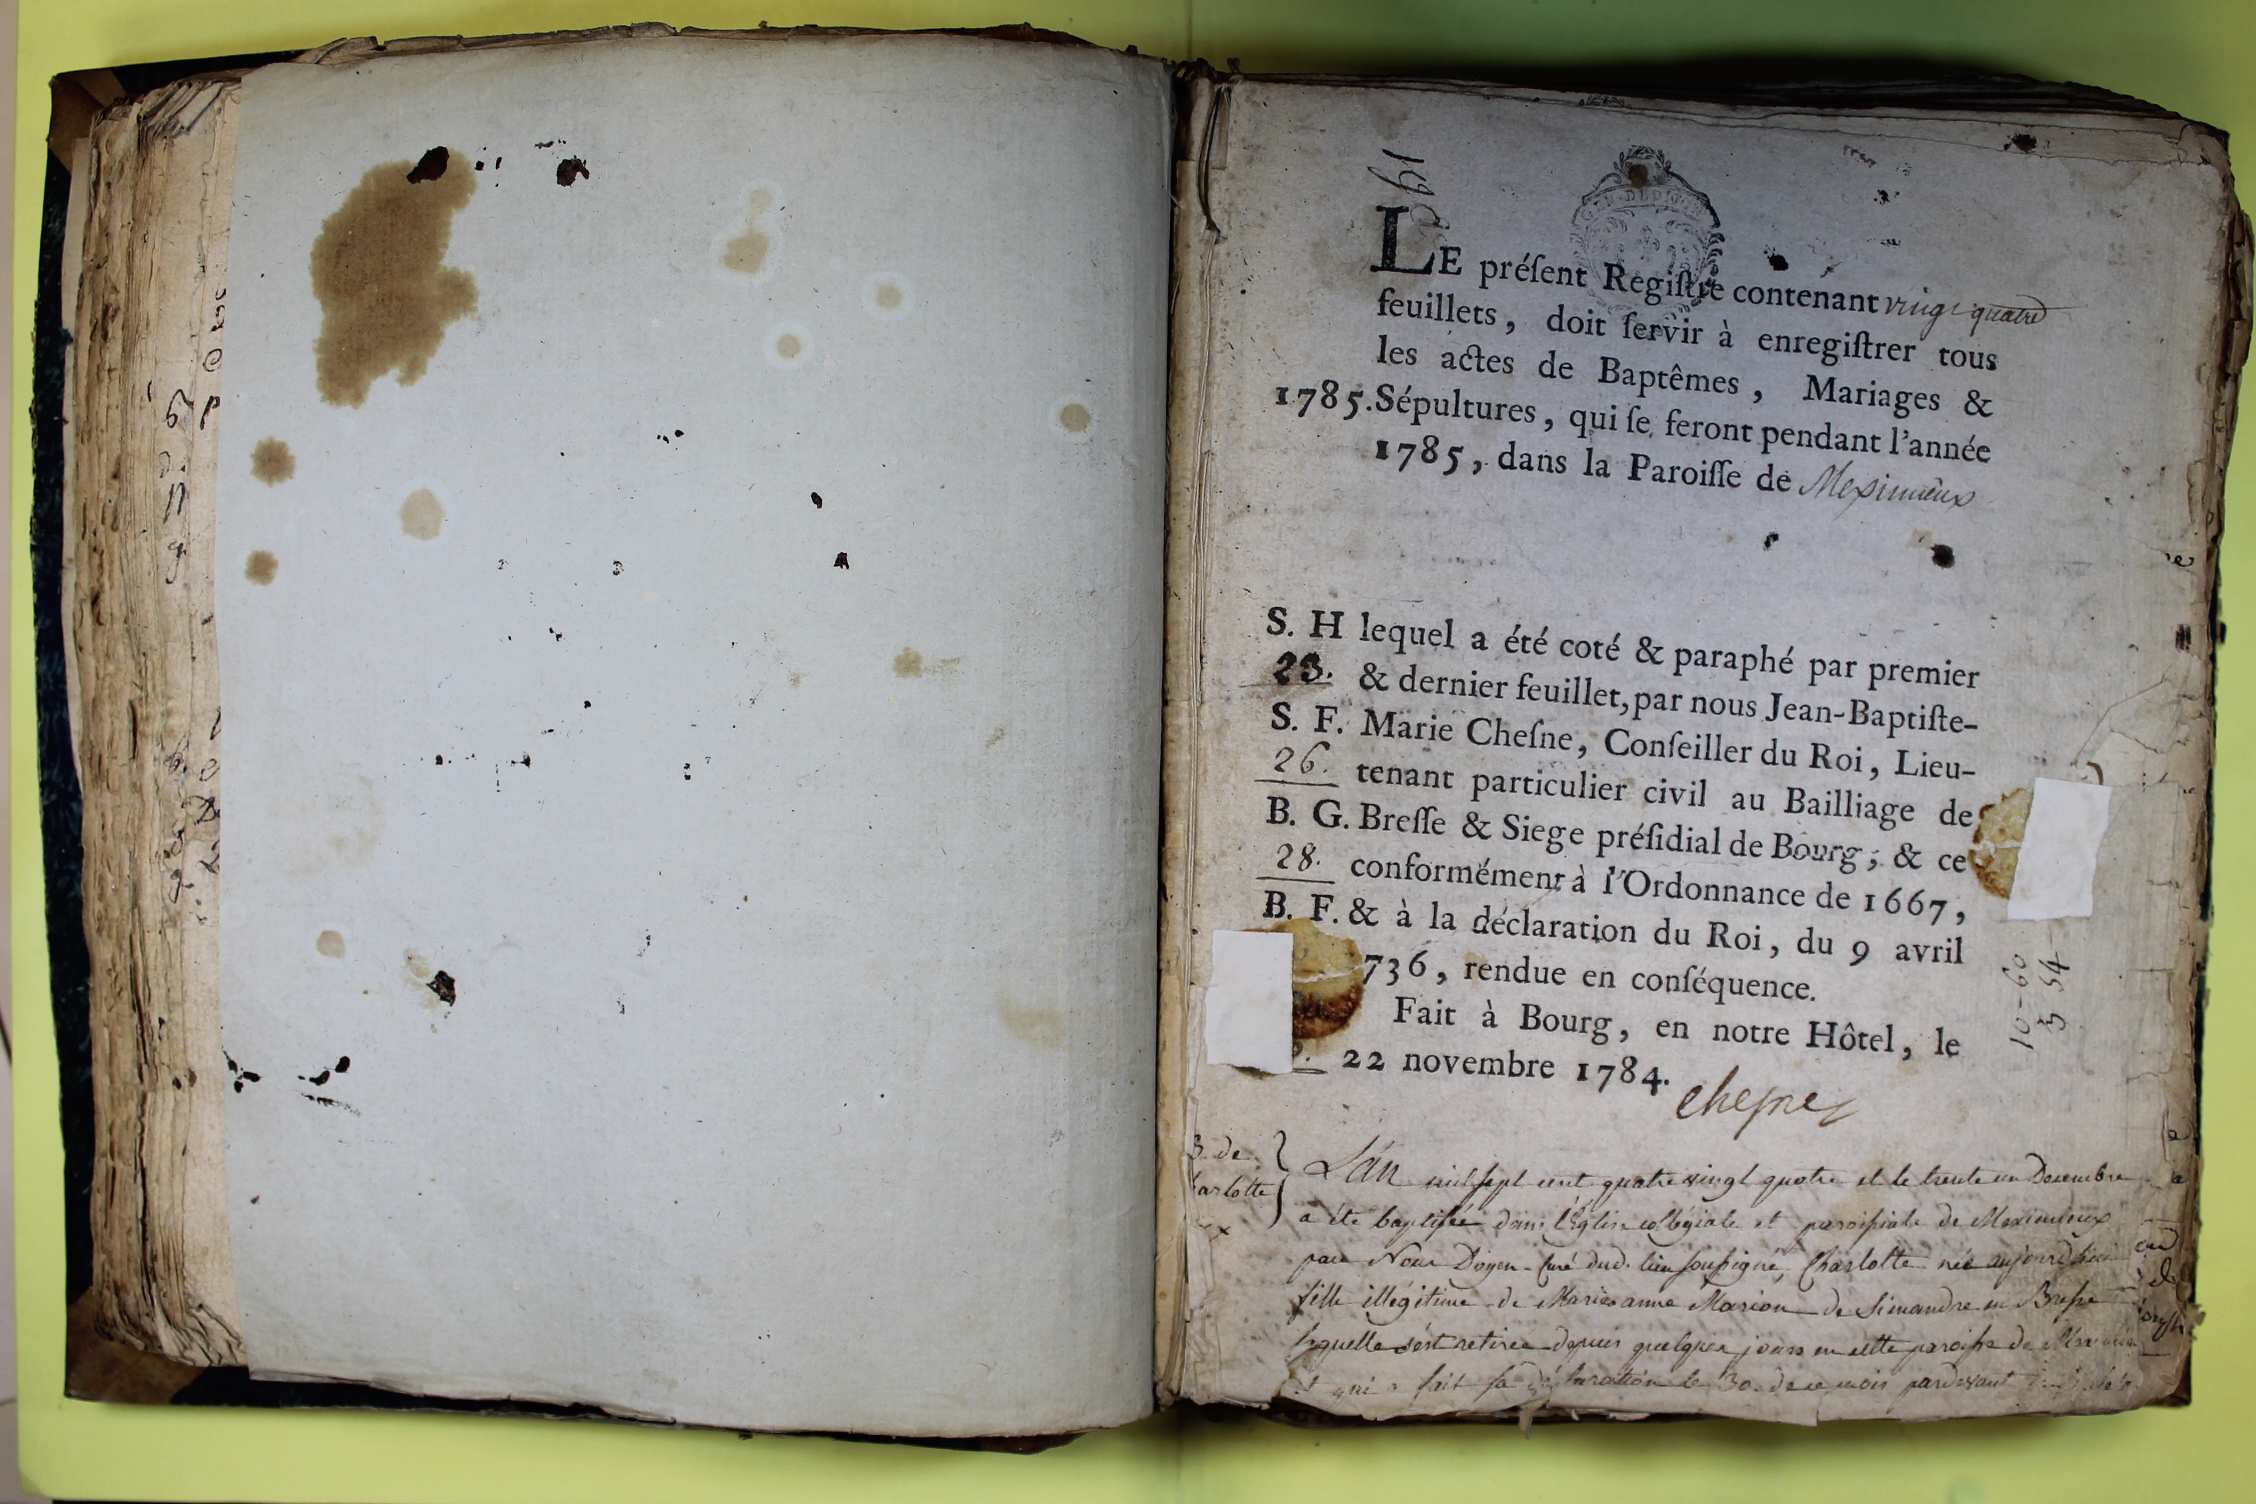 LE préſent Regiſtre contenant vingt quatre
feuillets, doit ſervir à enregiſtrer tous
les actes de Baptêmes, Mariages &
1785. Sépultures, qui ſe feront pendant l'année
1785, dans la Paroiſſe de Meximieux
S. H lequel a été coté & paraphé par premier
23. & dernier feuillet, par nous Jean-Baptiſte-
S. F. Marie Cheſne, Conſeiller du Roi, Lieu-
26. tenant particulier civil au Bailliage de
B. G. Breſſe & Siege préſidial de Bourg; & ce
28. conformément à l'Ordonnance de 1667,
B. F. & à la déclaration du Roi, du 9 avril
736, rendue en conſéquence.
Fait à Bourg, en notre Hôtel, le
22 novembre 1784.
cheſne
10-60
3 54
B. de
arlotte
L'an mil ſept cent quatre vingt quatre et le trente un Decembre
a été baptisée dans l'Église collégiale et paroiſſiale de Meximieux
par Nous Doyen-Curé dud. lieu ſouſsigné, Charlotte née aujourd'hui
fille illégitime de Marie anne Marion de Simandre en Breſſe
laquelle s'est retirée depuis quelques jours en cette paroiſſe de
et qui a fait ſa déclaration le 30 de ce mois pardevant